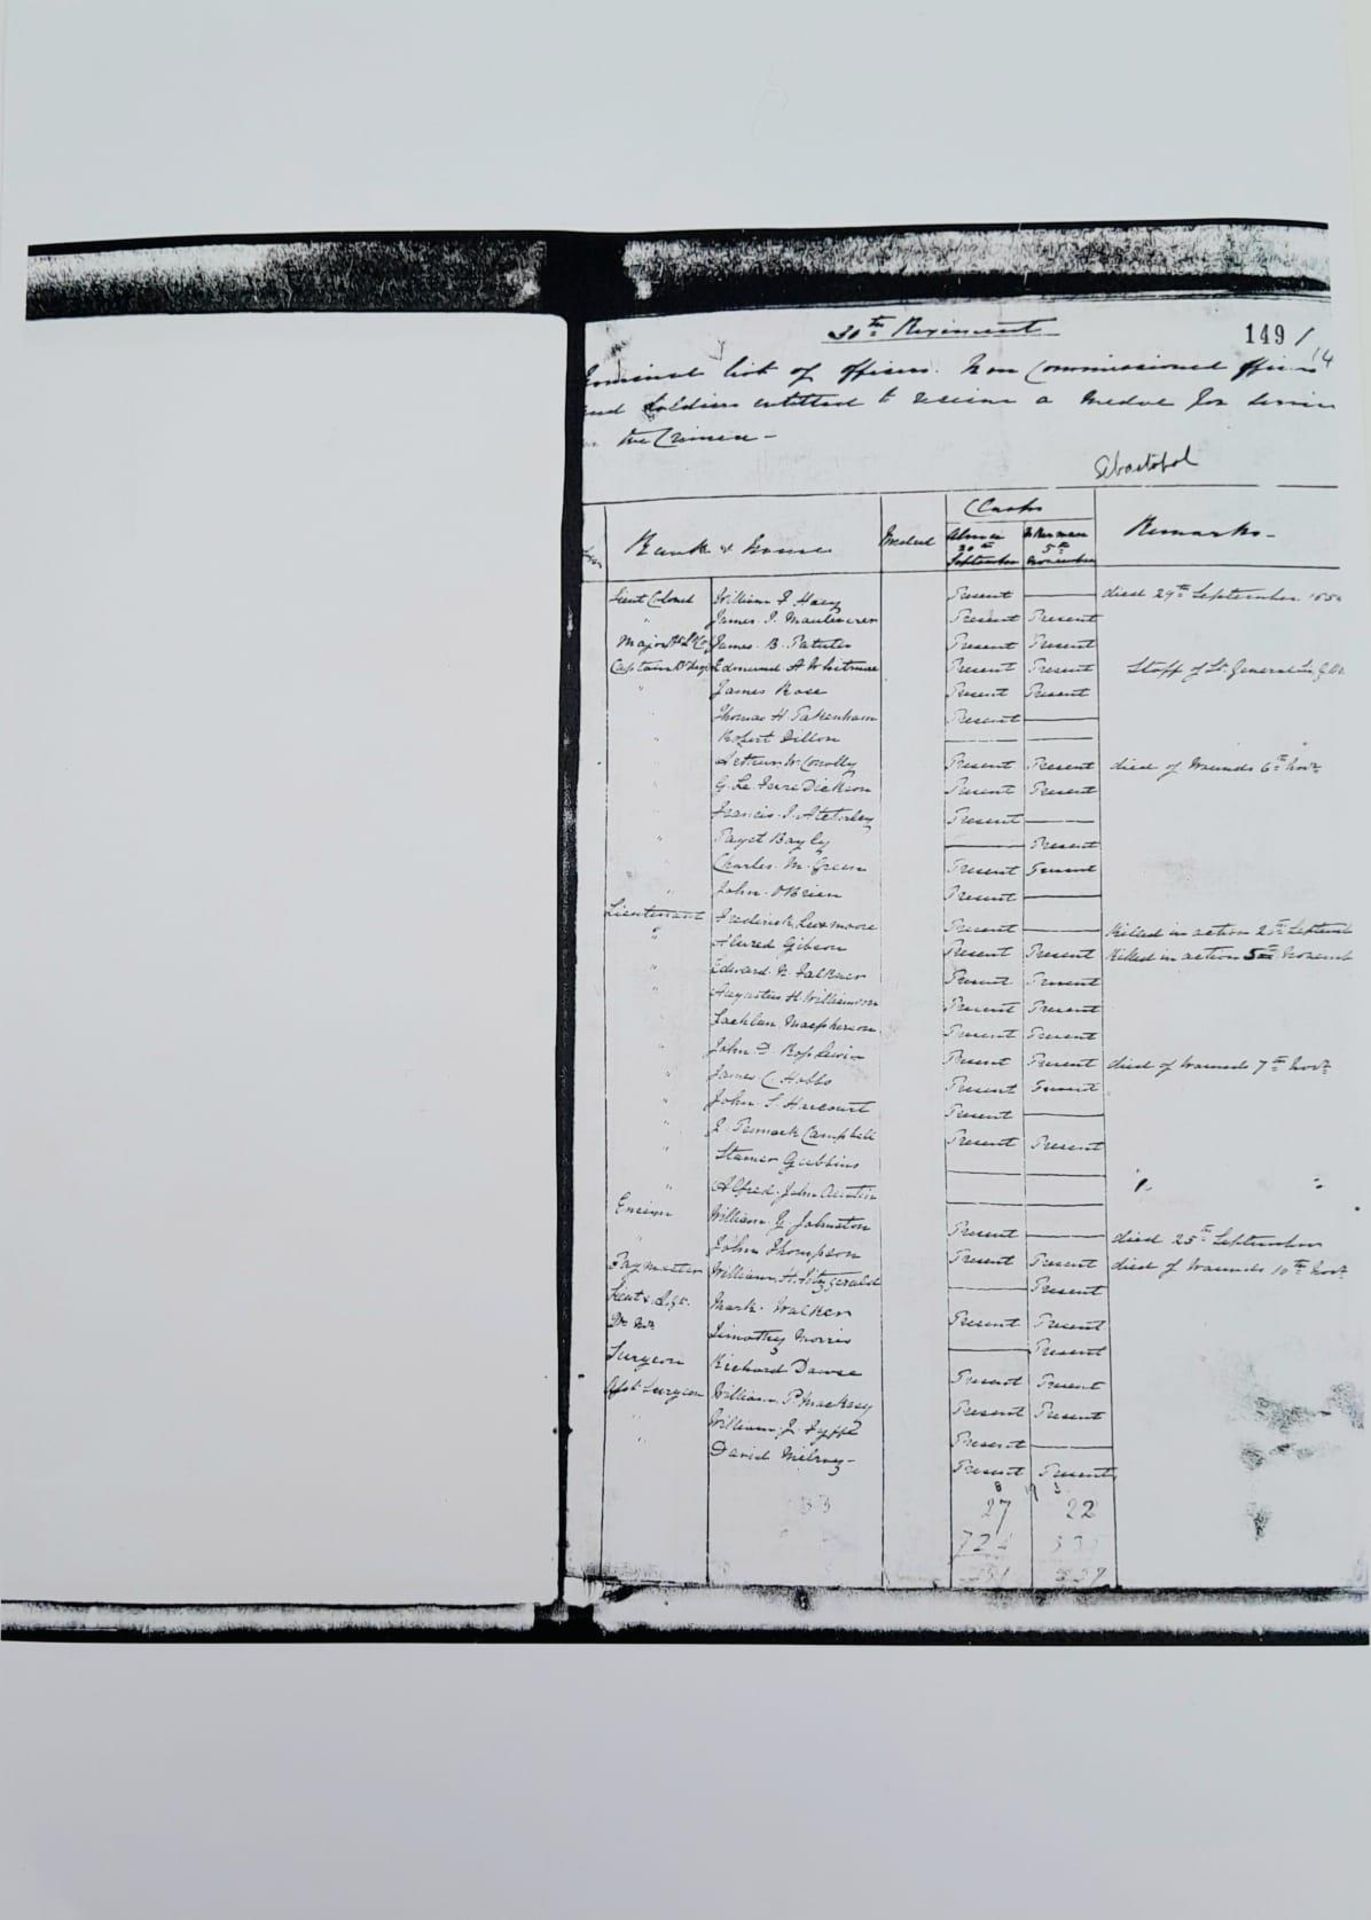 30th Regiment
149 /
14
Nominal list of officers. Non Commissioned officers
and Soldiers entitled to receive a Medal for service
in the Crimea -
Sebastopol
Rank & Name Medal Clasps Remarks -
Alma 20th September Inkerman 5th November
Lieut Colonel William F Hoey Present — died 29th September 185
" James T. Mauleverer Present Present
Major James B. Patullo Present Present
Captain Edmund A Whitmore Present Present Staff of Lt. General
" James Rose Present Present
Thomas H. Pakenham Present —
" Robert Dillon — —
" Arthur W Conolly Present Present died of Wounds 6th Novr
" G. Le Fevre Dickson Present Present
" Francis T. Atcherley Present —
" Paget Bayly — Present
" Charles M. Green Present Present
" John O'Brien Present —
Lieutenant Frederick Luxmoore Present — Killed in action 20th Septemb
" Alured Gibson Present Present Killed in action 5th Novemb
" Edward Falkner Present Present
" Augustus H. Williamson Present Present
Lachlan Macpherson Present Present
" John D Ross Lewin Present Present died of Wounds 7th Novr
" James C Hobbs Present Present
" John S Harcourt Present —
" Campbell Present Present
" Stamer Gubbins — —
" Alfred John Austin — —
Ensign William G Johnston Present — died 25th September
" John Thompson Present Present died of Wounds 10th Novr
Paymaster William H. Fitzgerald — Present
Mark Walker Present Present
Qr Mr Timothy Morris — Present
Surgeon Richard Dowse Present Present
Asst Surgeon William P. Mackesy Present Present
" William J. Fyffe Present —
" David Milroy - Present Present
33 27 22